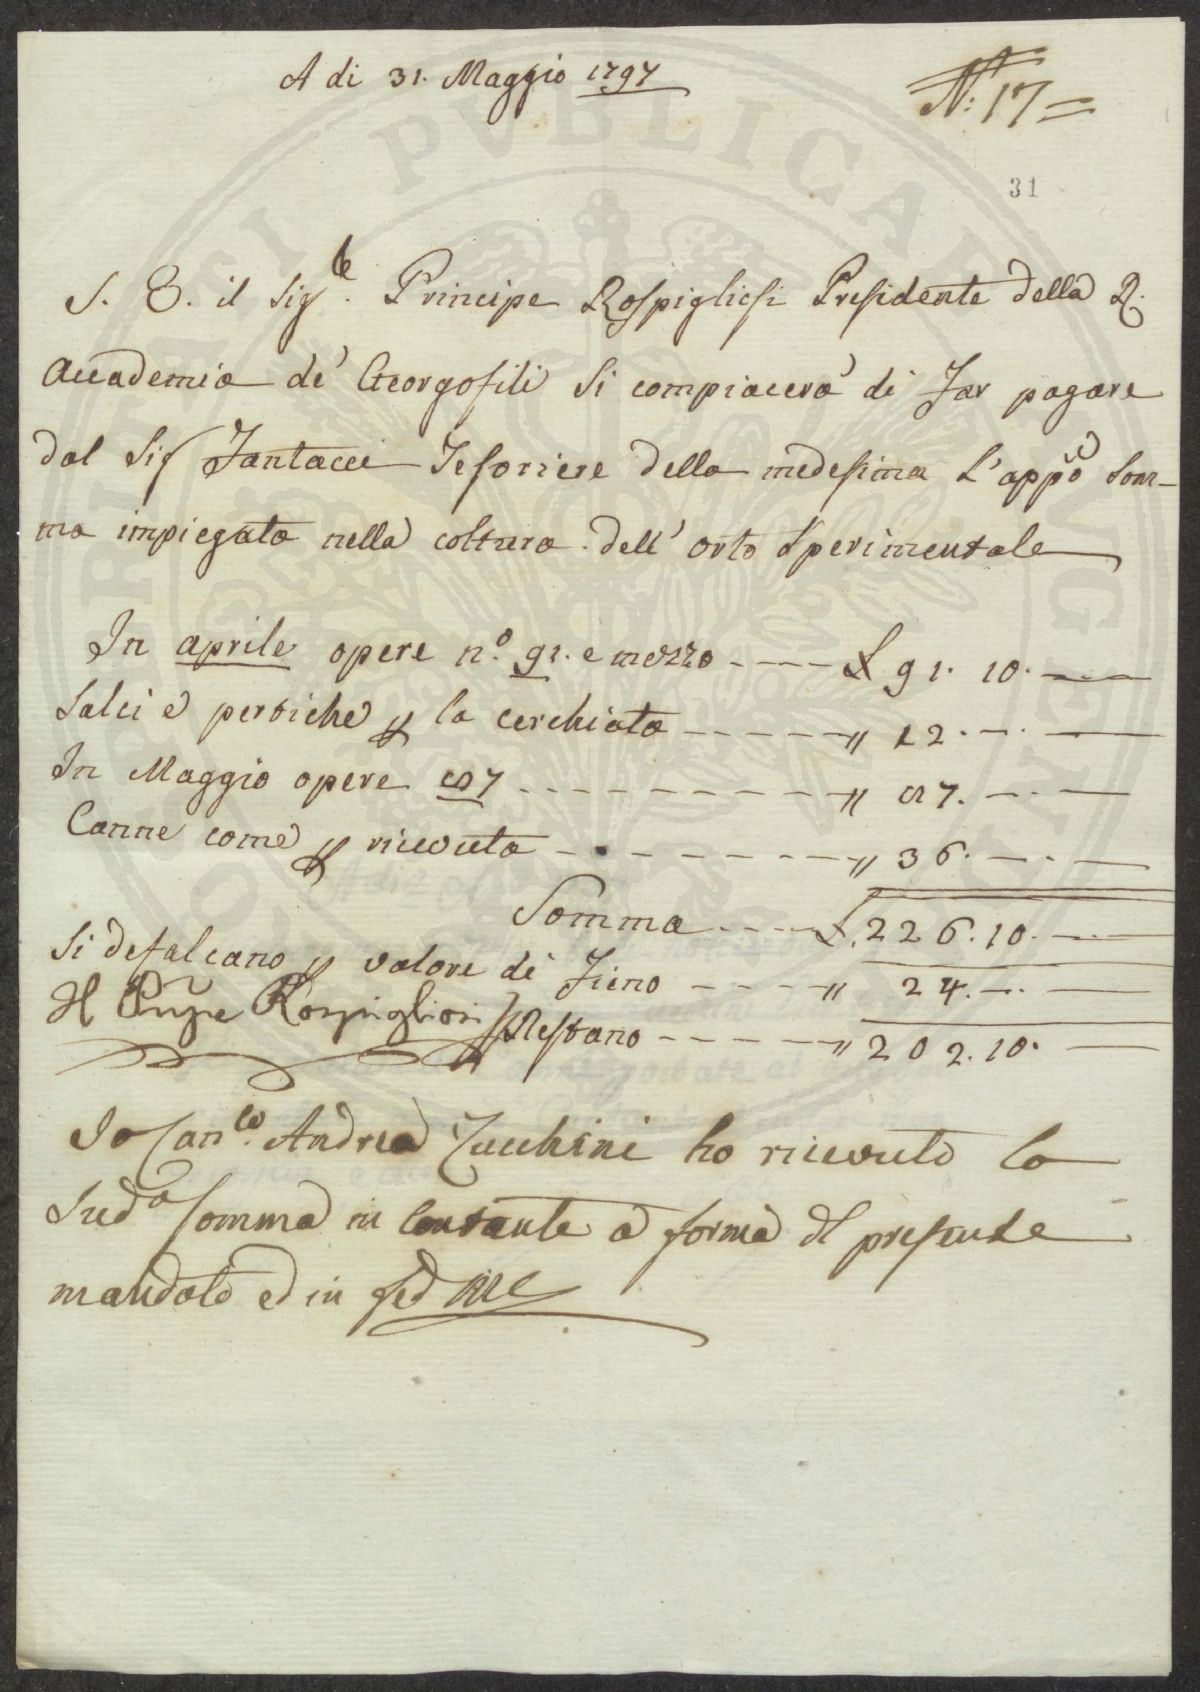 A di 31. Maggio 1797
N: 17=
31
S. E. il Sig.re Principe Rospigliosi Presidente della R.
Accademia de' Georgofili si compiacerà di far pagare
dal Sig Fantacci Tesoriere della medesima l'app.o Som-
ma impiegata nella coltura dell' orto Sperimentale
In aprile opere n.o 91. e mezzo ---- £ 91. 10. —
Salci e pertiche p la cerchiata ----- " 12. —. —
In Maggio opere 87 --------- " 87. —. —
Canne come p ricevuta -------- " 36. —. —
Somma ---- £. 226. 10. —
Si defalcano p valore di Fieno ---- " 24. —. —
Il Pnpe Rospigliosi Restano ----- " 202. 10. —
Io Can.co Andrea Zucchini ho ricevuto la
Sud.a somma in contante a forma del presente
mandato ed in fed